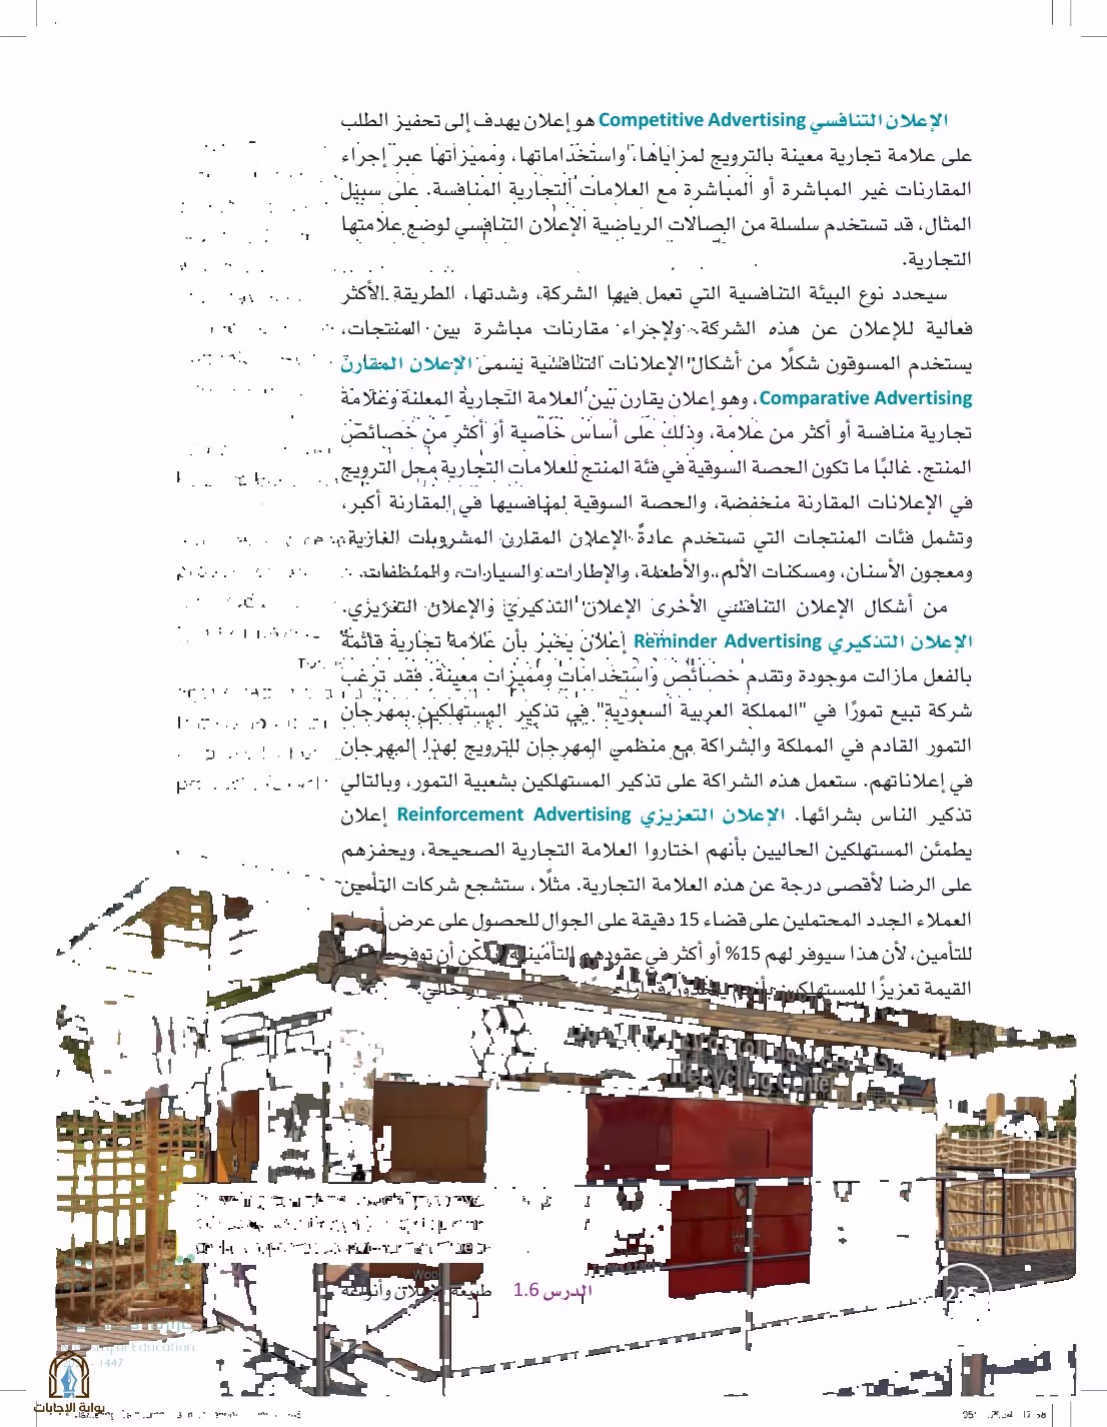 الإعلان التنافسي Competitive Advertising هو إعلان يهدف إلى تحفيز الطلب
على علامة تجارية معينة بالترويج لمزاياها، واستخداماتها، ومميزاتها عبر إجراء
المقارنات غير المباشرة أو المباشرة مع العلامات التجارية المنافسة. على سبيل
المثال، قد تستخدم سلسلة من الصالات الرياضية الإعلان التنافسي لوضع علامتها
التجارية.
سيحدد نوع البيئة التنافسية التي تعمل فيها الشركة، وشدتها، الطريقة الأكثر
فعالية للإعلان عن هذه الشركة. ولإجراء مقارنات مباشرة بين المنتجات،
يستخدم المسوقون شكلًا من أشكال الإعلانات التنافسية يسمى الإعلان المقارن
Comparative Advertising، وهو إعلان يقارن بين العلامة التجارية المعلنة وعلامة
تجارية منافسة أو أكثر من علامة، وذلك على أساس خاصية أو أكثر من خصائص
المنتج. غالبًا ما تكون الحصة السوقية في فئة المنتج للعلامات التجارية محل الترويج
في الإعلانات المقارنة منخفضة، والحصة السوقية لمنافسيها في المقارنة أكبر،
وتشمل فئات المنتجات التي تستخدم عادةً الإعلان المقارن المشروبات الغازية،
ومعجون الأسنان، ومسكنات الألم، والأطعمة، والإطارات، والسيارات، والمنظفات.
من أشكال الإعلان التنافسي الأخرى الإعلان التذكيري والإعلان التعزيزي.
الإعلان التذكيري Reminder Advertising إعلان يخبر بأن علامة تجارية قائمة
بالفعل مازالت موجودة وتقدم خصائص واستخدامات ومميزات معينة. فقد ترغب
شركة تبيع تمورًا في "المملكة العربية السعودية" في تذكير المستهلكين بمهرجان
التمور القادم في المملكة والشراكة مع منظمي المهرجان للترويج لهذا المهرجان
في إعلاناتهم. ستعمل هذه الشراكة على تذكير المستهلكين بشعبية التمور، وبالتالي
تذكير الناس بشرائها. الإعلان التعزيزي Reinforcement Advertising إعلان
يطمئن المستهلكين الحاليين بأنهم اختاروا العلامة التجارية الصحيحة، ويحفزهم
على الرضا لأقصى درجة عن هذه العلامة التجارية. مثلًا، ستشجع شركات التأمين
العملاء الجدد المحتملين على قضاء 15 دقيقة على الجوال للحصول على عرض
للتأمين، لأن هذا سيوفر لهم 15% أو أكثر في عقودهم التأمينية. يمكن أن توفر
القيمة تعزيزًا للمستهلكين
Recycling Center
الدرس 1.6 طبيعة الإعلان وأنواعه
285
Ministry of Education
1447
بوابة الإجابات